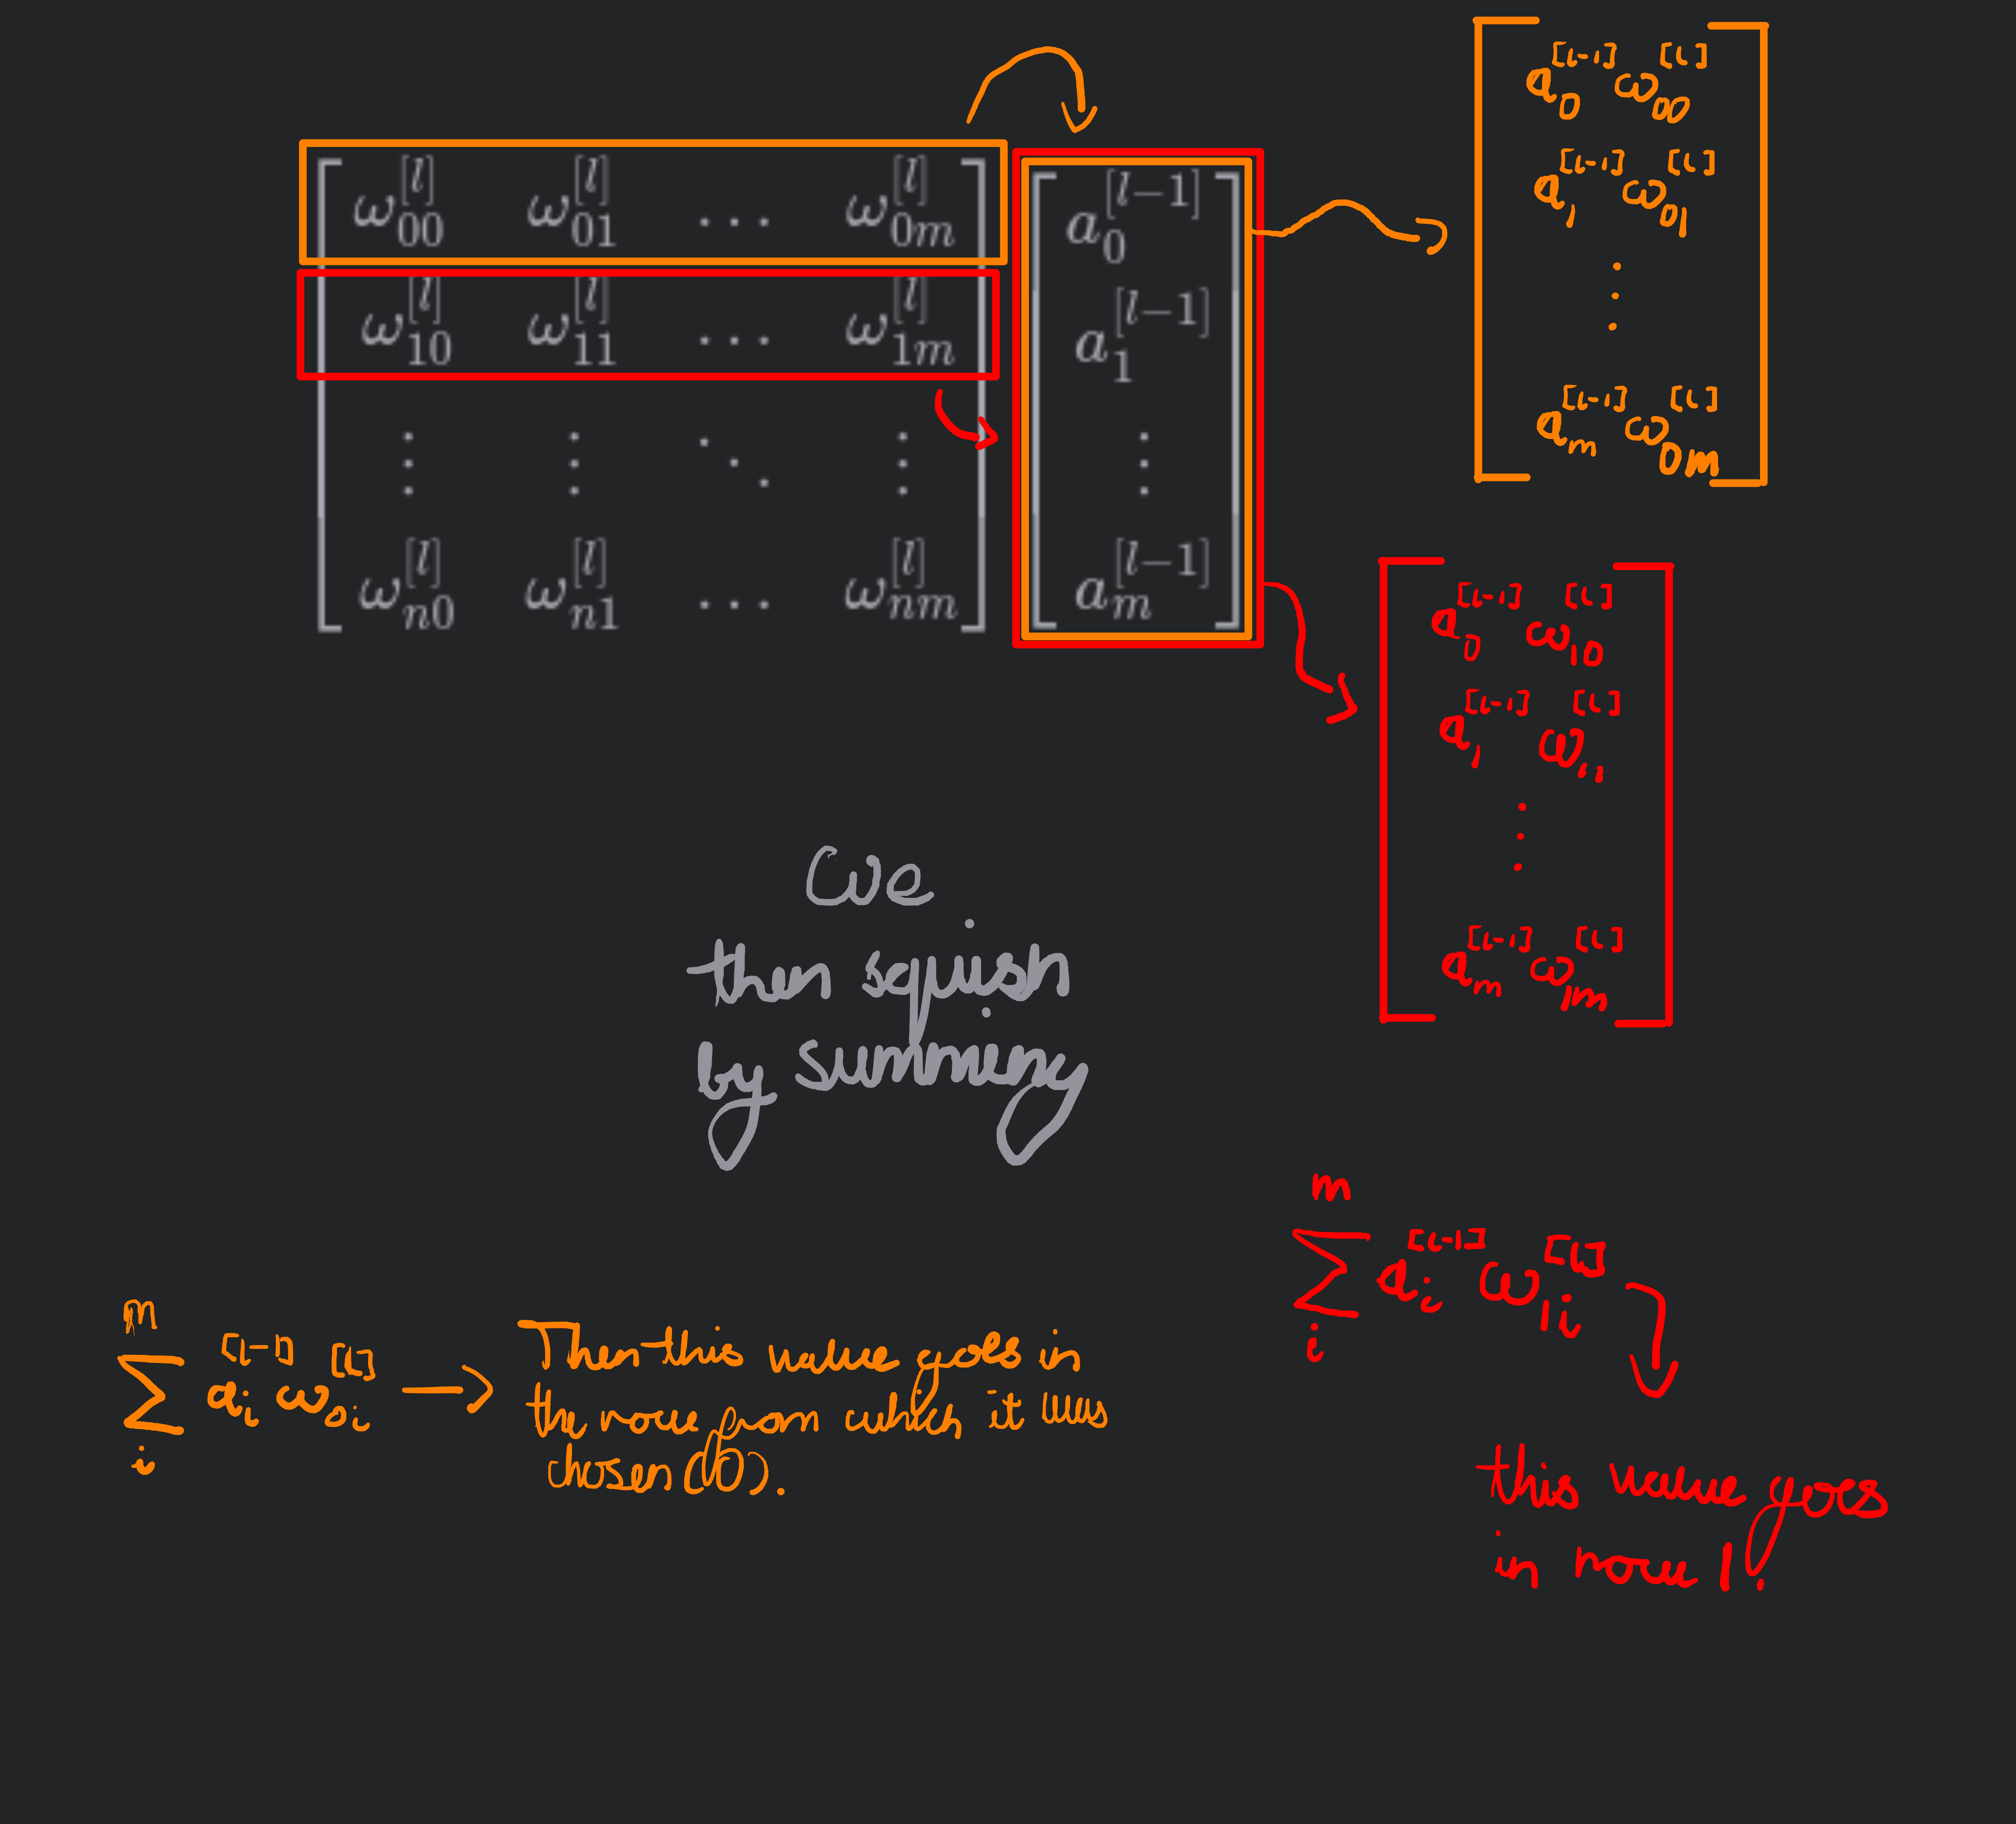 ω_{00}^{[l]} ω_{01}^{[l]} ... ω_{0m}^{[l]}
ω_{10}^{[l]} ω_{11}^{[l]} ... ω_{1m}^{[l]}
⋮ ⋮ ⋱ ⋮
ω_{n0}^{[l]} ω_{n1}^{[l]} ... ω_{nm}^{[l]}
a_0^{[l-1]}
a_1^{[l-1]}
⋮
a_m^{[l-1]}
a_0^{[l-1]} ω_{00}^{[l]}
a_1^{[l-1]} ω_{01}^{[l]}
⋮
a_m^{[l-1]} ω_{0m}^{[l]}
a_0^{[l-1]} ω_{10}^{[l]}
a_1^{[l-1]} ω_{11}^{[l]}
⋮
a_m^{[l-1]} ω_{1m}^{[l]}
We
then squish
by summing
∑_i^m a_i^{[l-1]} ω_{0i}^{[l]} → Then this value goes in
the row from which it was
chosen (0).
∑_i^m a_i^{[l-1]} ω_{1i}^{[l]}
this value goes
in row 1.